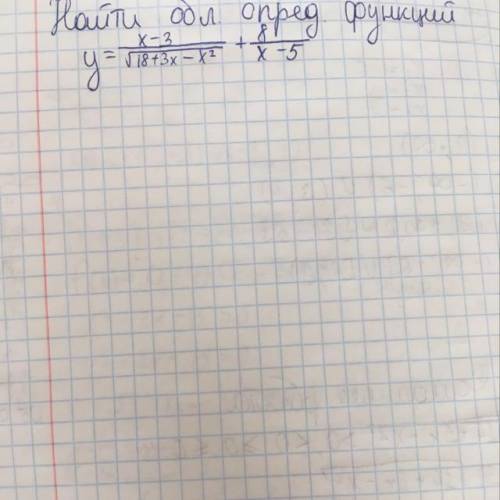 Найти обл опред. функций
y = \frac{x-3}{\sqrt{18+3x-x^2}} + \frac{8}{x-5}